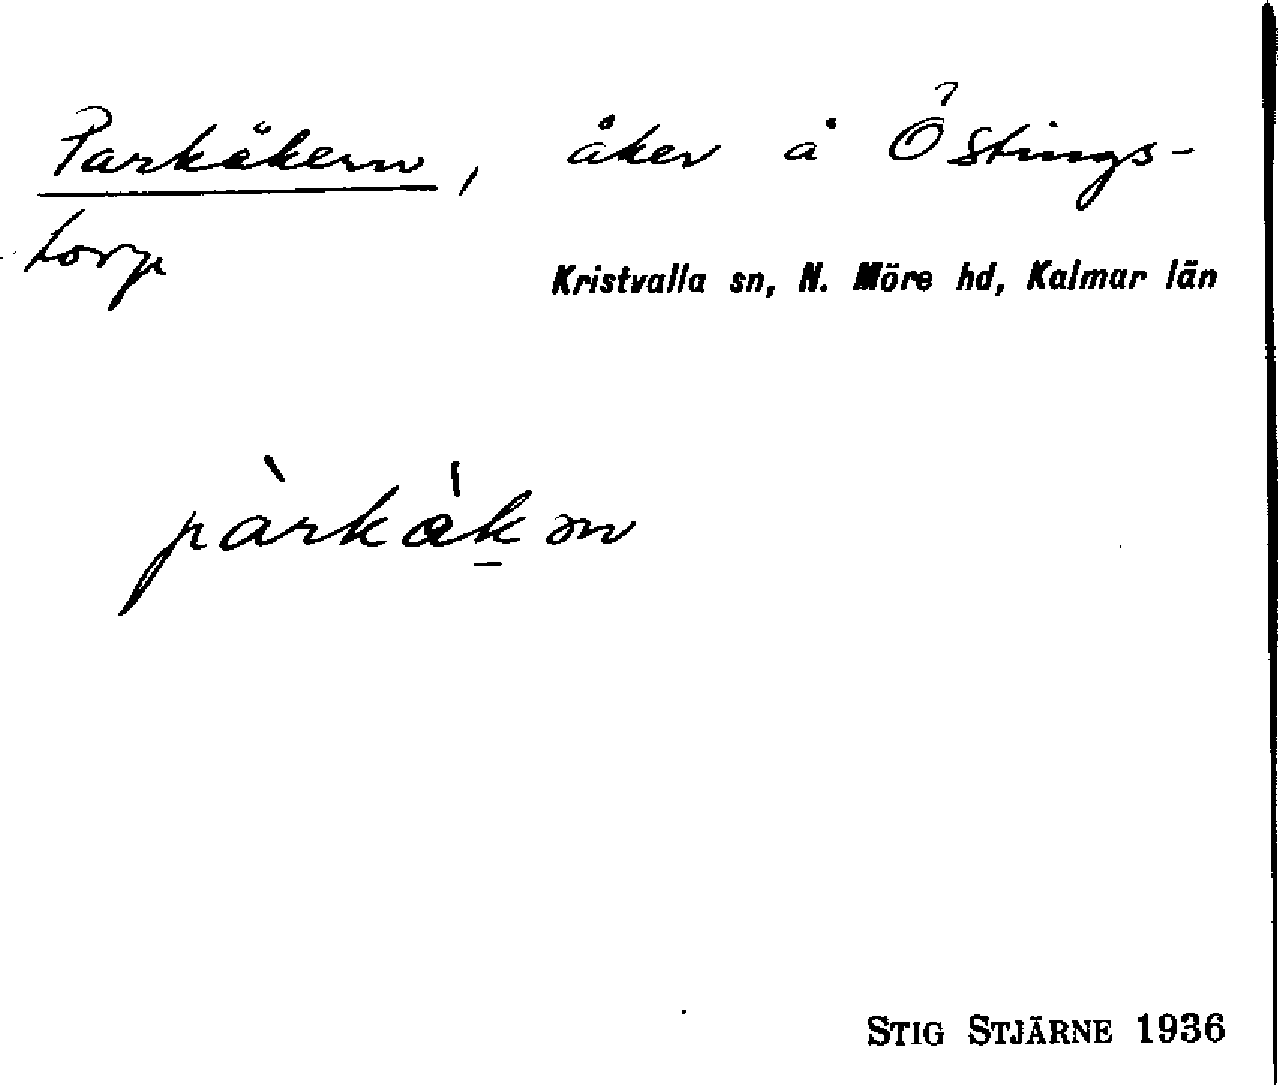 Parkåkern, åker å Östings-
torp
Kristvalla sn, N. Möre hd, Kalmar län
STIG STJÄRNE 1936